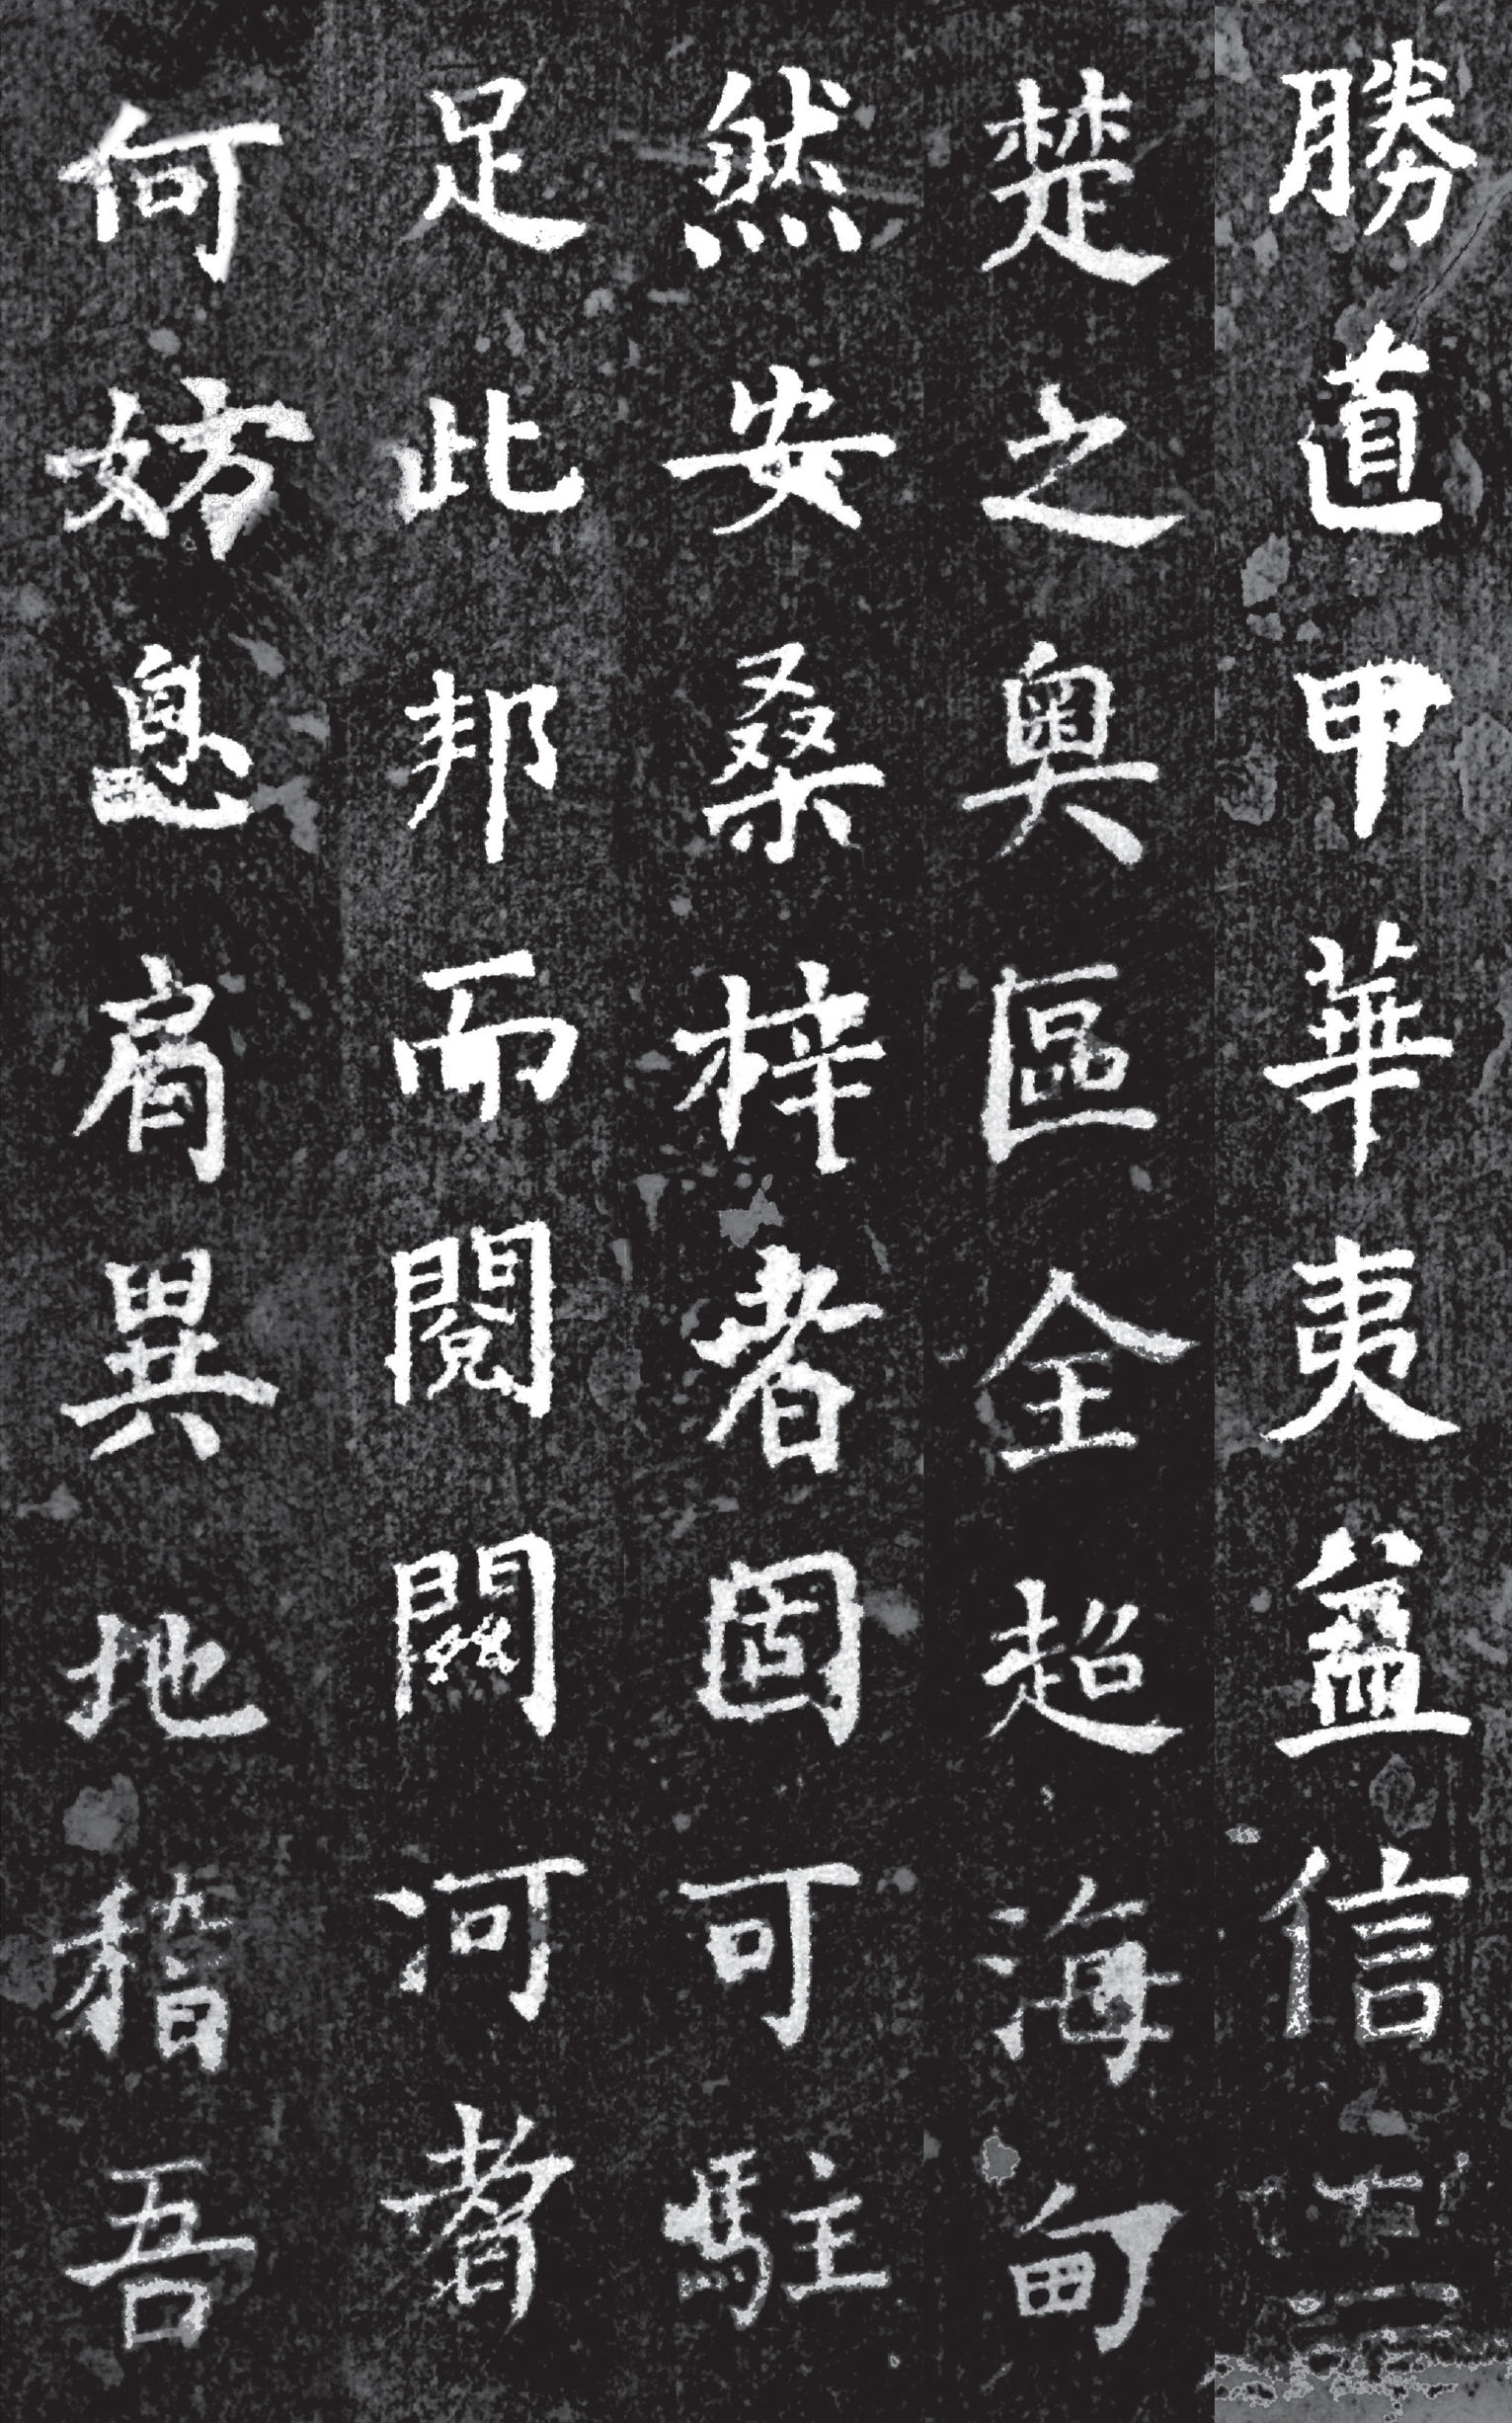 勝直甲華夷盖信
楚之奧區全超海甸
然安桑梓者固可駐
足此邦而閱關河者
何妨息肩異地稽吾